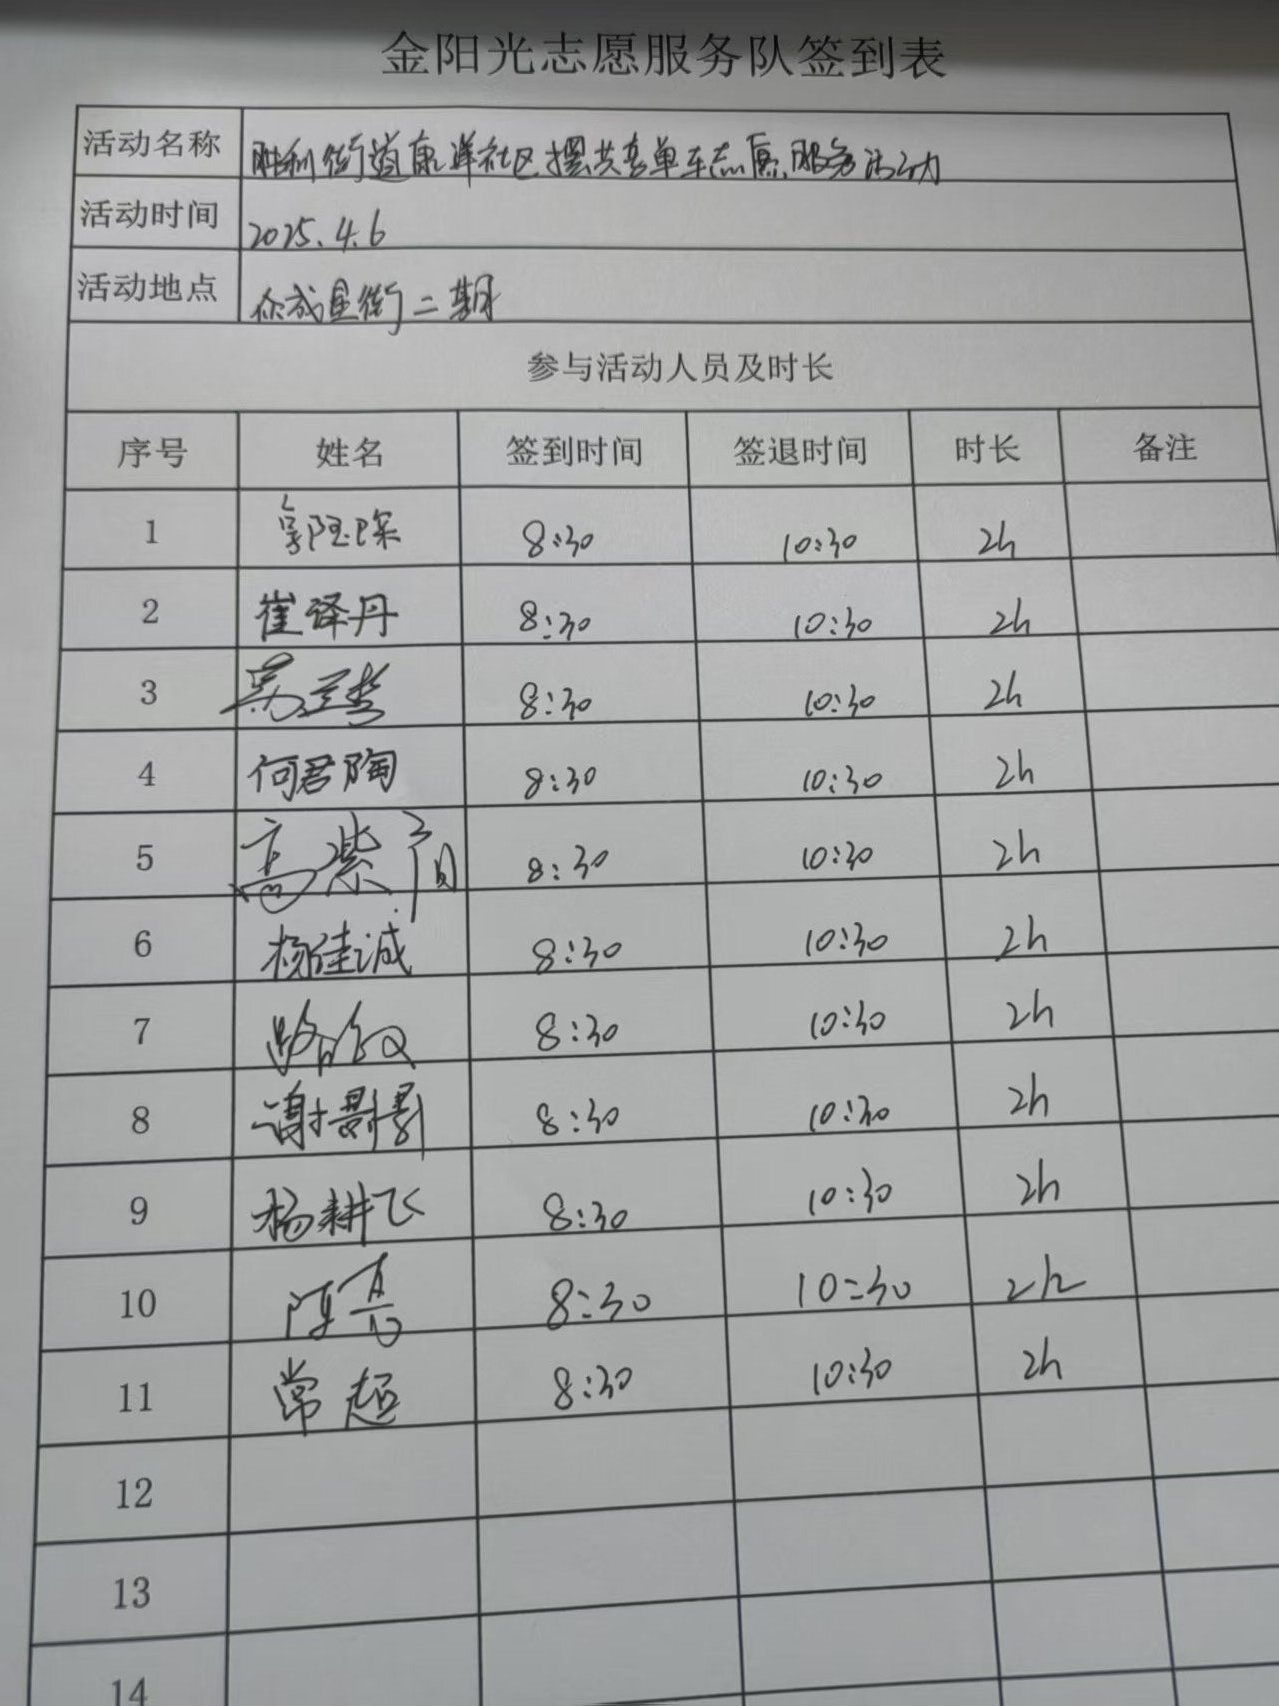 金阳光志愿服务队签到表
活动名称 胜利街道康洋社区摆共享单车志愿服务活动
活动时间 2025.4.6
活动地点 众成星街二期
参与活动人员及时长
序号 姓名 签到时间 签退时间 时长 备注
1 郭 8:30 10:30 2h
2 崔译丹 8:30 10:30 2h
3 8:30 10:30 2h
4 何君陶 8:30 10:30 2h
5 高紫 8:30 10:30 2h
6 杨佳诚 8:30 10:30 2h
7 路 8:30 10:30 2h
8 谢 8:30 10:30 2h
9 杨耕飞 8:30 10:30 2h
10 陈亮 8:30 10:30 2h
11 常超 8:30 10:30 2h
12
13
14